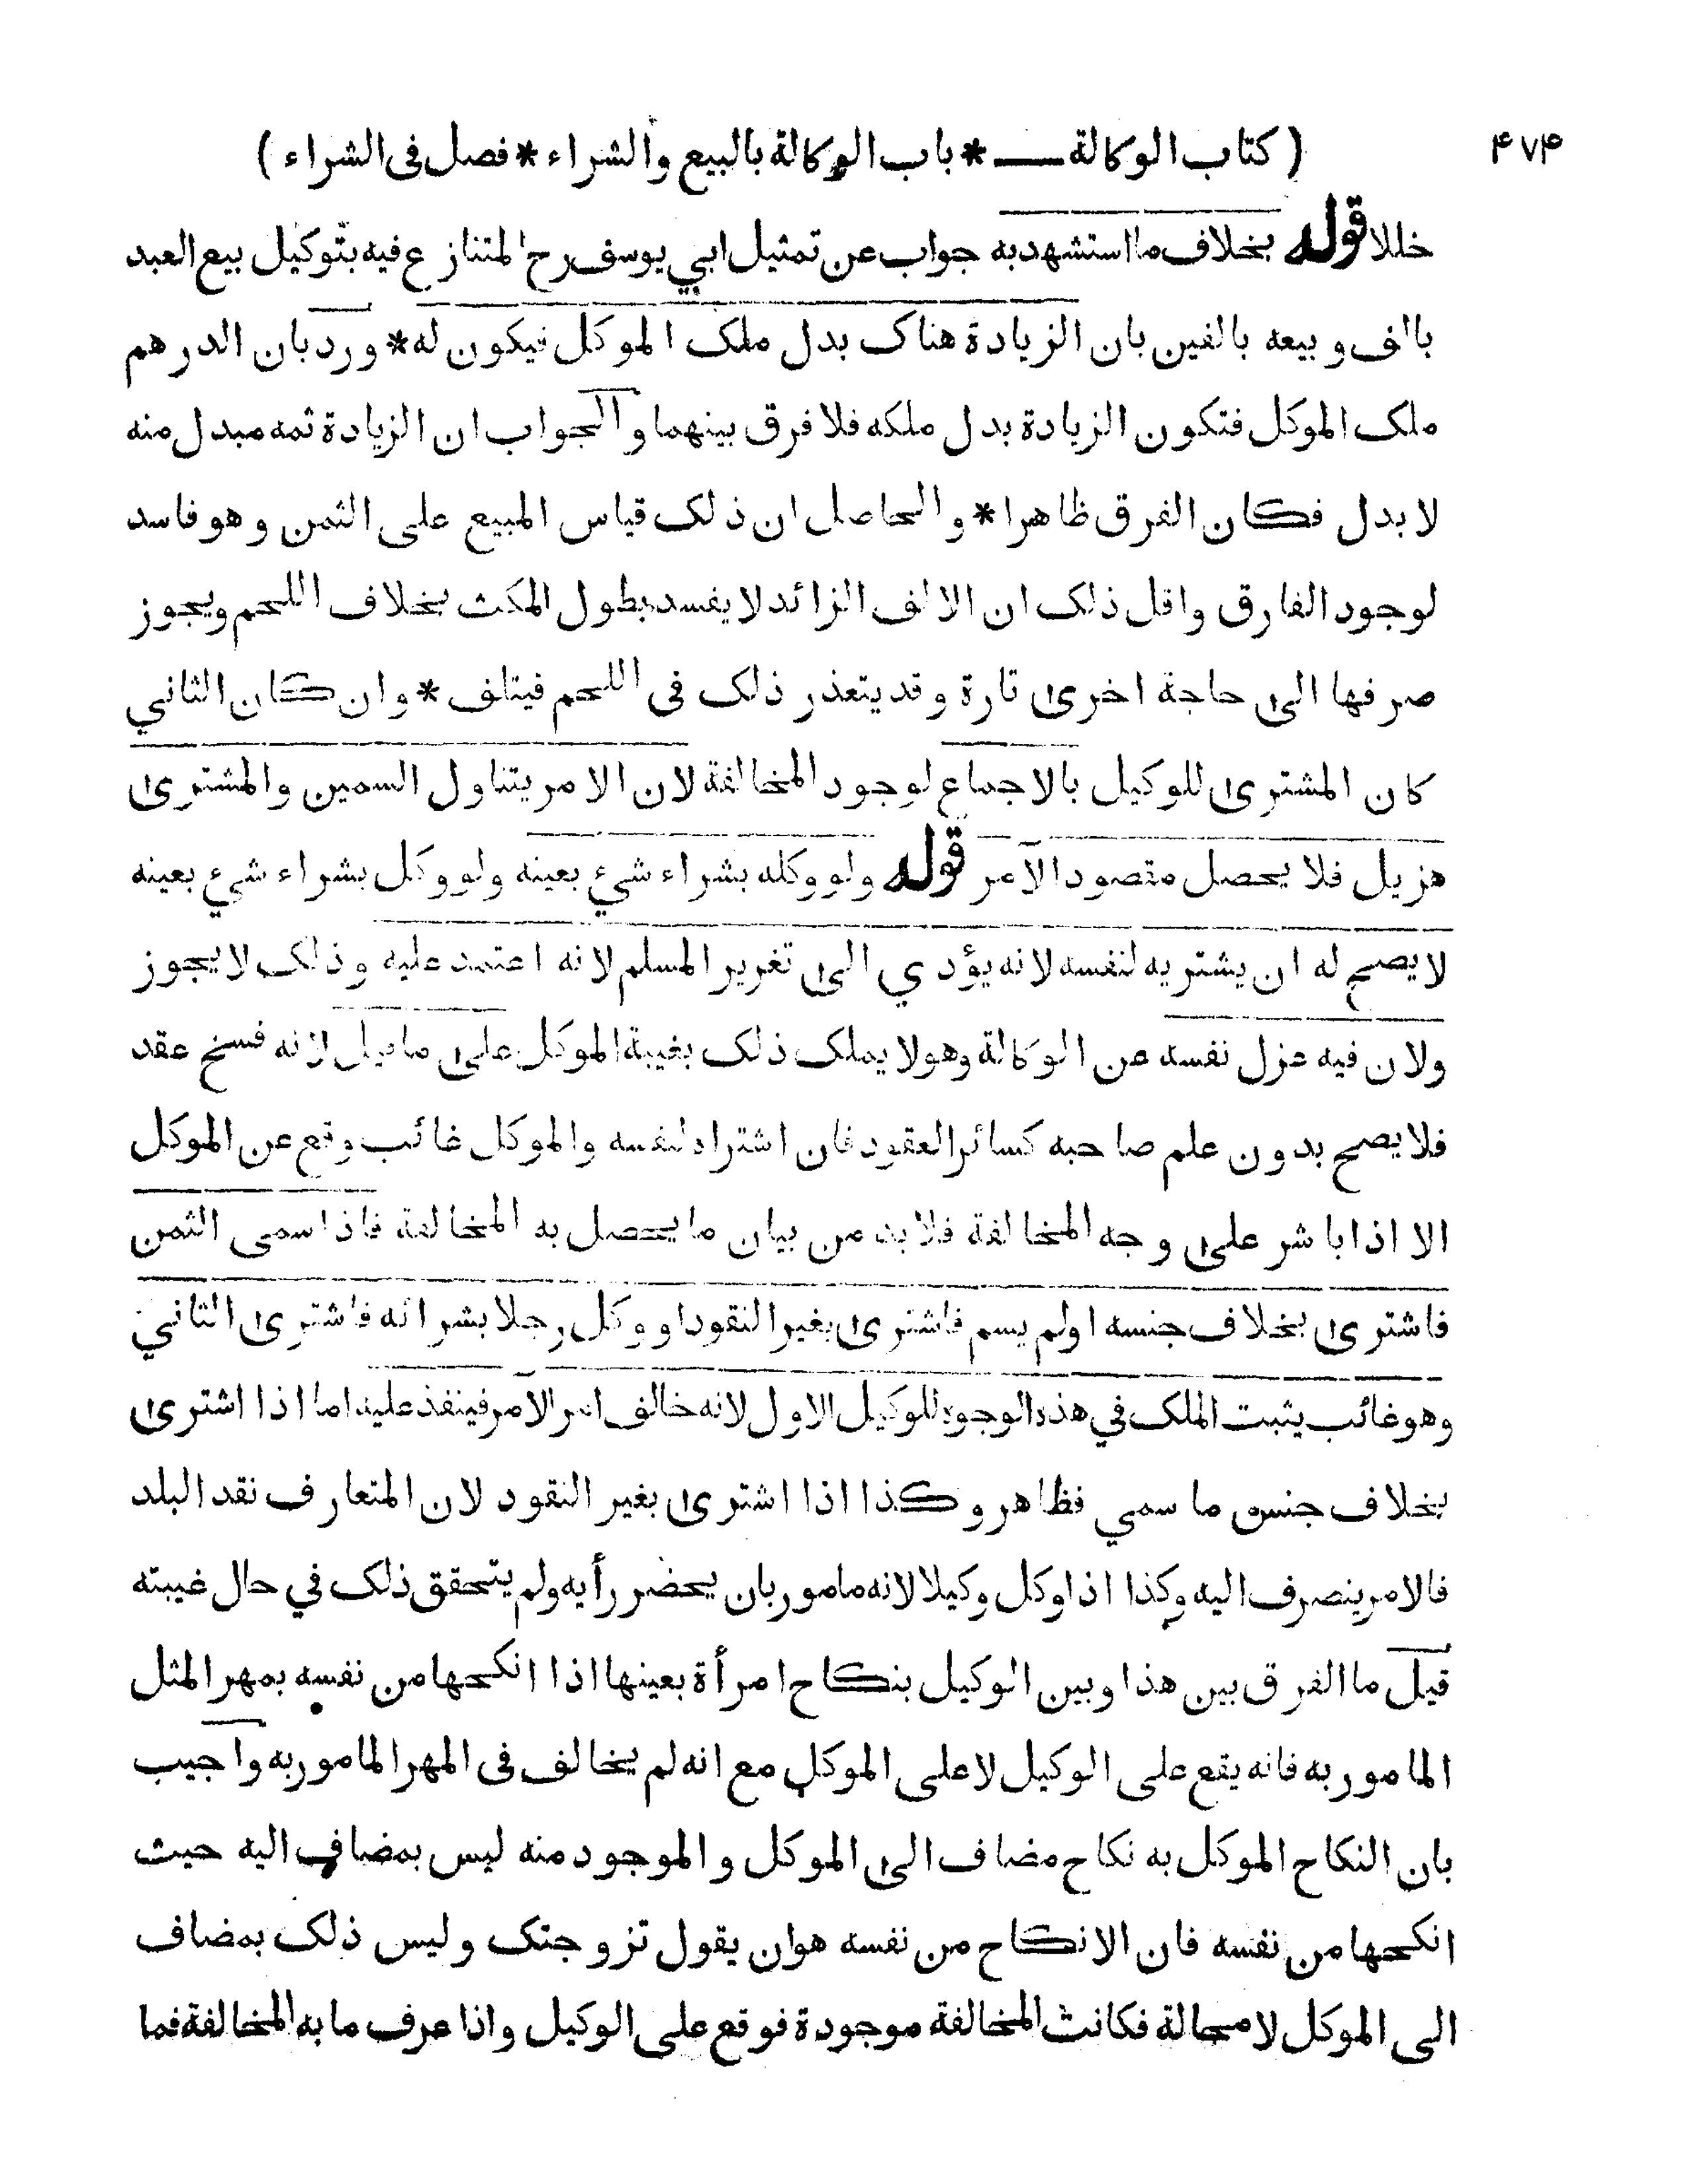 ( كتاب الوكالة ــــ * باب الوكالة بالبيع والشراء * فصل فى الشراء ) ۴۷۴
خللا قوله بخلاف ما استشهد به جواب عن تمثيل ابي يوسف رح المتنازع فيه بتوكيل بيع العبد
بالف و بيعه بالفين بان الزيادة هناك بدل ملك الموكل فيكون له * ورد بان الدرهم
ملك الموكل فتكون الزيادة بدل ملكه فلا فرق بينهما والجواب ان الزيادة ثمه مبدل منه
لا بدل فكان الفرق ظاهرا * والحاصل ان ذلك قياس المبيع على الثمن وهو فاسد
لوجود الفارق واقل ذلك ان الالف الزائد لا يفسد بطول المكث بخلاف اللحم ويجوز
صرفها الى حاجة اخرى تارة وقد يتعذر ذلك فى اللحم فيتلف * وان كان الثاني
كان المشترى للوكيل بالاجماع لوجود المخالفة لان الامر يتناول السمين والمشترى
هزيل فلا يحصل مقصود الآمر قوله ولو وكله بشراء شيء بعينه ولو وكل بشراء شيء بعينه
لا يصح له ان يشتريه لنفسه لانه يؤدي الى تغرير المسلم لانه اعتمد عليه وذلك لا يجوز
ولان فيه عزل نفسه عن الوكالة وهو لا يملك ذلك بغيبة الموكل على ما قيل لانه فسخ عقد
فلا يصح بدون علم صاحبه كسائر العقود فان اشتراه لنفسه والموكل غائب وقع عن الموكل
الا اذا باشر على وجه المخالفة فلا بد من بيان ما يحصل به المخالفة فاذا سمى الثمن
فاشترى بخلاف جنسه اولم يسم فاشترى بغير النقود او وكل رجلا بشرائه فاشترى الثاني
وهو غائب يثبت الملك في هذه الوجوه للوكيل الاول لانه خالف امر الآمر فينفذ عليه اما اذا اشترى
بخلاف جنس ما سمي فظاهر وكذا اذا اشترى بغير النقود لان المتعارف نقد البلد
فالامر ينصرف اليه وكذا اذا وكل وكيلا لانه مامور بان يحضر رأيه ولم يتحقق ذلك في حال غيبته
قيل ما الفرق بين هذا وبين الوكيل بنكاح امرأة بعينها اذا انكحها من نفسه بمهر المثل
المامور به فانه يقع على الوكيل لا على الموكل مع انه لم يخالف فى المهر المامور به واجيب
بان النكاح الموكل به نكاح مضاف الى الموكل والموجود منه ليس بمضاف اليه حيث
انكحها من نفسه فان الانكاح من نفسه هو ان يقول تزوجتك وليس ذلك بمضاف
الى الموكل لا محالة فكانت المخالفة موجودة فوقع على الوكيل واذا عرف ما به المخالفة فما